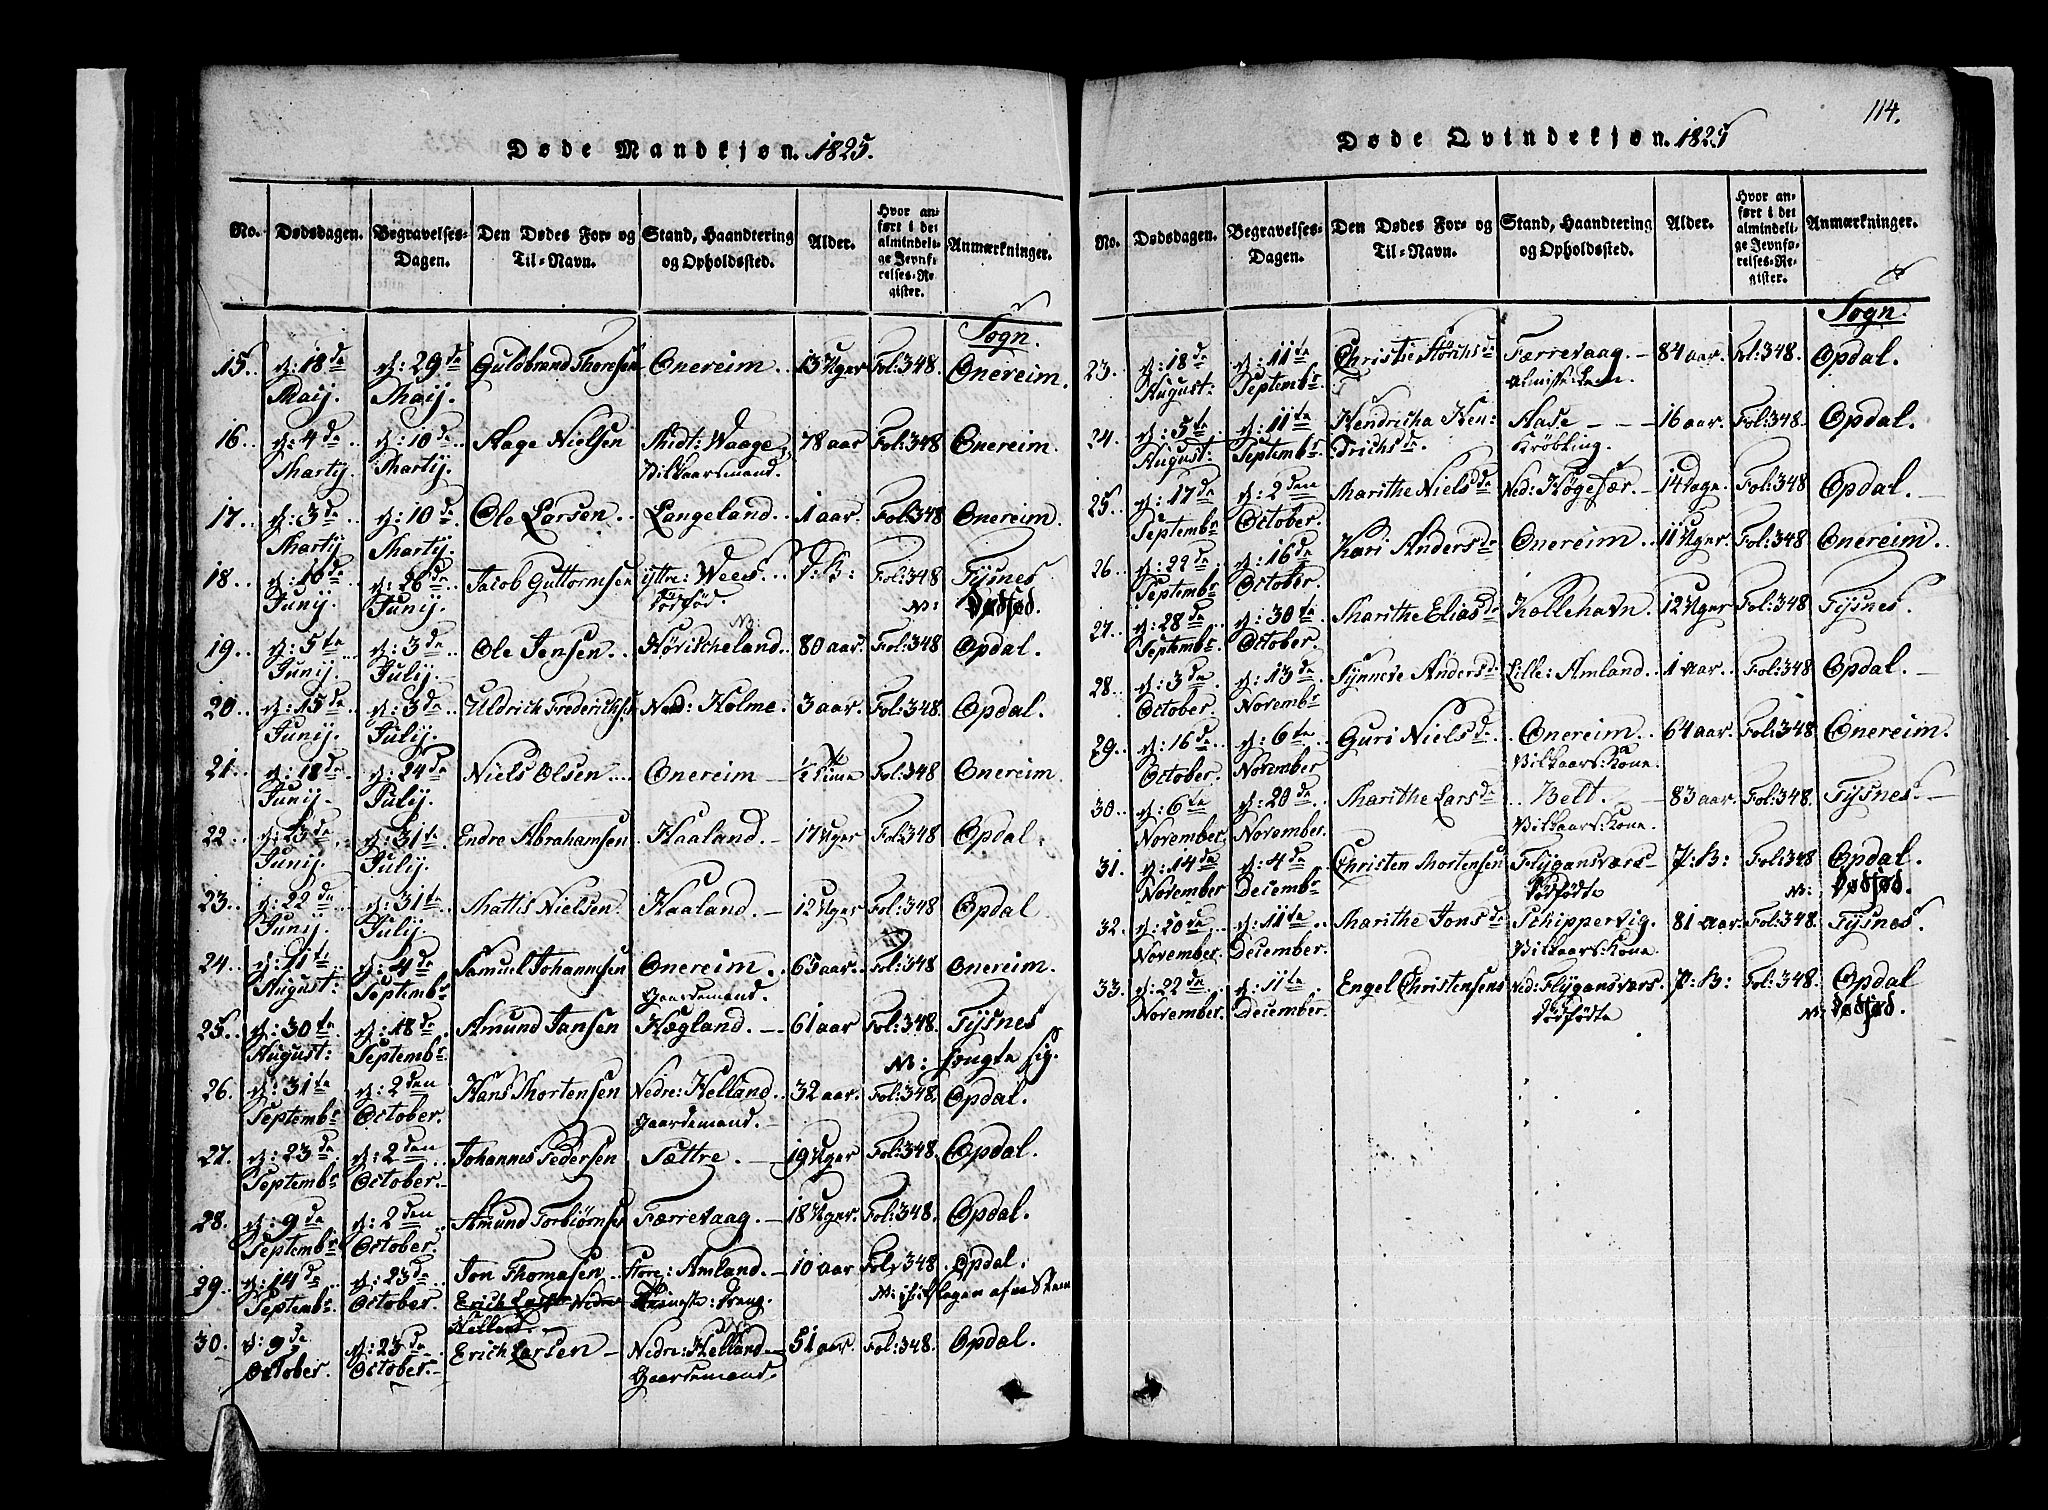 Døde Mandkjøn. 1825.
No. Dødsdagen. Begravelses-Dagen. Den Dødes For- og Til-Navn. Stand, Haandtering og Opholdssted. Alder. Hvor anført i det almindelige Jevnførelses-Register. Anmærkninger.
Sogn.
15. d: 18de Maij. d: 29de Maij. Guldbrand Thoresen Onereim. 13 Uger Fol: 348. Onereim.
16. d: 4de Martij. d: 10de Martij. Aage Nielsen Midt: Waage, Vilkaarsmand. 78 aar Fol: 348 Onereim.
17. d: 3de Martij. d: 10de Martij. Ole Larsen Langeland. 1 aar. Fol: 348 Onereim.
18. d: 16de Junij. d: 26de Junij. Jacob Guttormsen yttre: Wees. Dødfød. D: B: Fol: 348 Tÿsnes
N: Dødfød.
19. d: 5te Junij. d: 3de Julij. Ole Jensen Hörischeland. 80 aar. Fol: 348 Opdal.
20. d: 15de Junij. d: 3de Julij. Uldrich Frederichs: Ned: Holme. 3 aar. Fol: 348. Opdal.
21. d: 18de Junij. d: 24de Julij. Niels Olsen Onereim ½ Time Fol: 348 Onereim.
22. d: 23de Junij. d: 31te Julij. Endre Abrahamsen Haaland. 17 Uger Fol: 348 Opdal.
23. d: 22de Junij. d: 31te Julij. Mattis Nielsen. Haaland. 12 Uger Fol: 348 Opdal
24. d: 11te August: d: 4de Septembr Samuel Johannesen Onereim. Gaardemand. 65 aar. Fol: 348 Onereim.
25. d: 30te August: d: 18de Septembr Amund Jansen Hægland. 61 aar Fol: 348. Tÿsnes
N: hengte sig.
26. d: 31te Septembr d: 2den October. Hans Mortensen Nedre: Helland. Gaardemand. 32 aar. Fol: 348. Opdal.
27. d: 23de Septembr d: 2den October. Johannes Pedersen Sættre. 19 Uger Fol: 348. Opdal.
28. d: 9de Septembr d: 2den October. Amund Torbiørns: Færrevaag. 18 Uger. Fol: 348. Opdal.
29. d: 14de Septembr d: 23de October. Jon Thomasen Store: Amland. 10 aar Fol: 348 Opdal.
Erich Larsen Nedre Helland. Tienneste: Dreng. N: ihielslagen af en Steen
30. d: 9de October. d: 23de October. Erich Larsen Nedre: Helland Gaardemand. 51 aar. Fol: 348. Opdal.
114.
Døde Qvindekjøn. 1825
No. Dødsdagen. Begravelses-Dagen. Den Dødes For- og Til-Navn. Stand, Haandtering og Opholdssted. Alder. Hvor anført i det almindelige Jevnførelses-Register. Anmærkninger.
Sogn.
23. d: 18de August: d: 11te Septembr Christie Störchsde Færrevaag. Almisse: Lem. 84 aar. Fol: 348. Opdal.
24. d: 5te August: d: 11te Septembr Hendricha Hendrichsde Aase Kröbling. 16 aar. Fol: 348. Opdal.
25. d: 17de Septembr d: 2den October. Marithe Nielsde Ned: Högefær. 14 Dage. Fol: 348 Opdal.
26. d: 22de Septembr d: 16de October. Kari Andersde Onereim. 11 Uger. Fol: 348 Onereim.
27. d: 28de Septembr d: 30te October. Marithe Eliasde Kollehavn. 12 Uger Fol: 348 Tÿsnes.
28. d: 3de October. d: 13de Novembr Synneve Andersd: Lille: Amland. 1 aar. Fol: 348 Opdal.
29. d: 16de October. d: 6te November Guri Nielsde Onereim. Vilkaars: Kone. 64 aar. Fol: 348. Onereim.
30. d: 6te November. d: 20de November. Marithe Larsde Belt. Vilkaars: Kone. 83 aar. Fol: 348. Tÿsnes.
31. d: 14de November d: 4de Decembr Christen Mortensen Flÿgansværs Dødfödte D: B: Fol: 348 Opdal.
N: Dødfød.
32. d: 20de November. d: 11te December. Marithe Jonsde Schippervig. Vilkaars: Kone 81 aar. Fol: 348. Tÿsnes.
33. d: 22de November. d: 11te December. Engel Christensens Ned: Flÿgansværs. Dødfödte D: B: Fol: 348. Opdal
N: Dødfød.